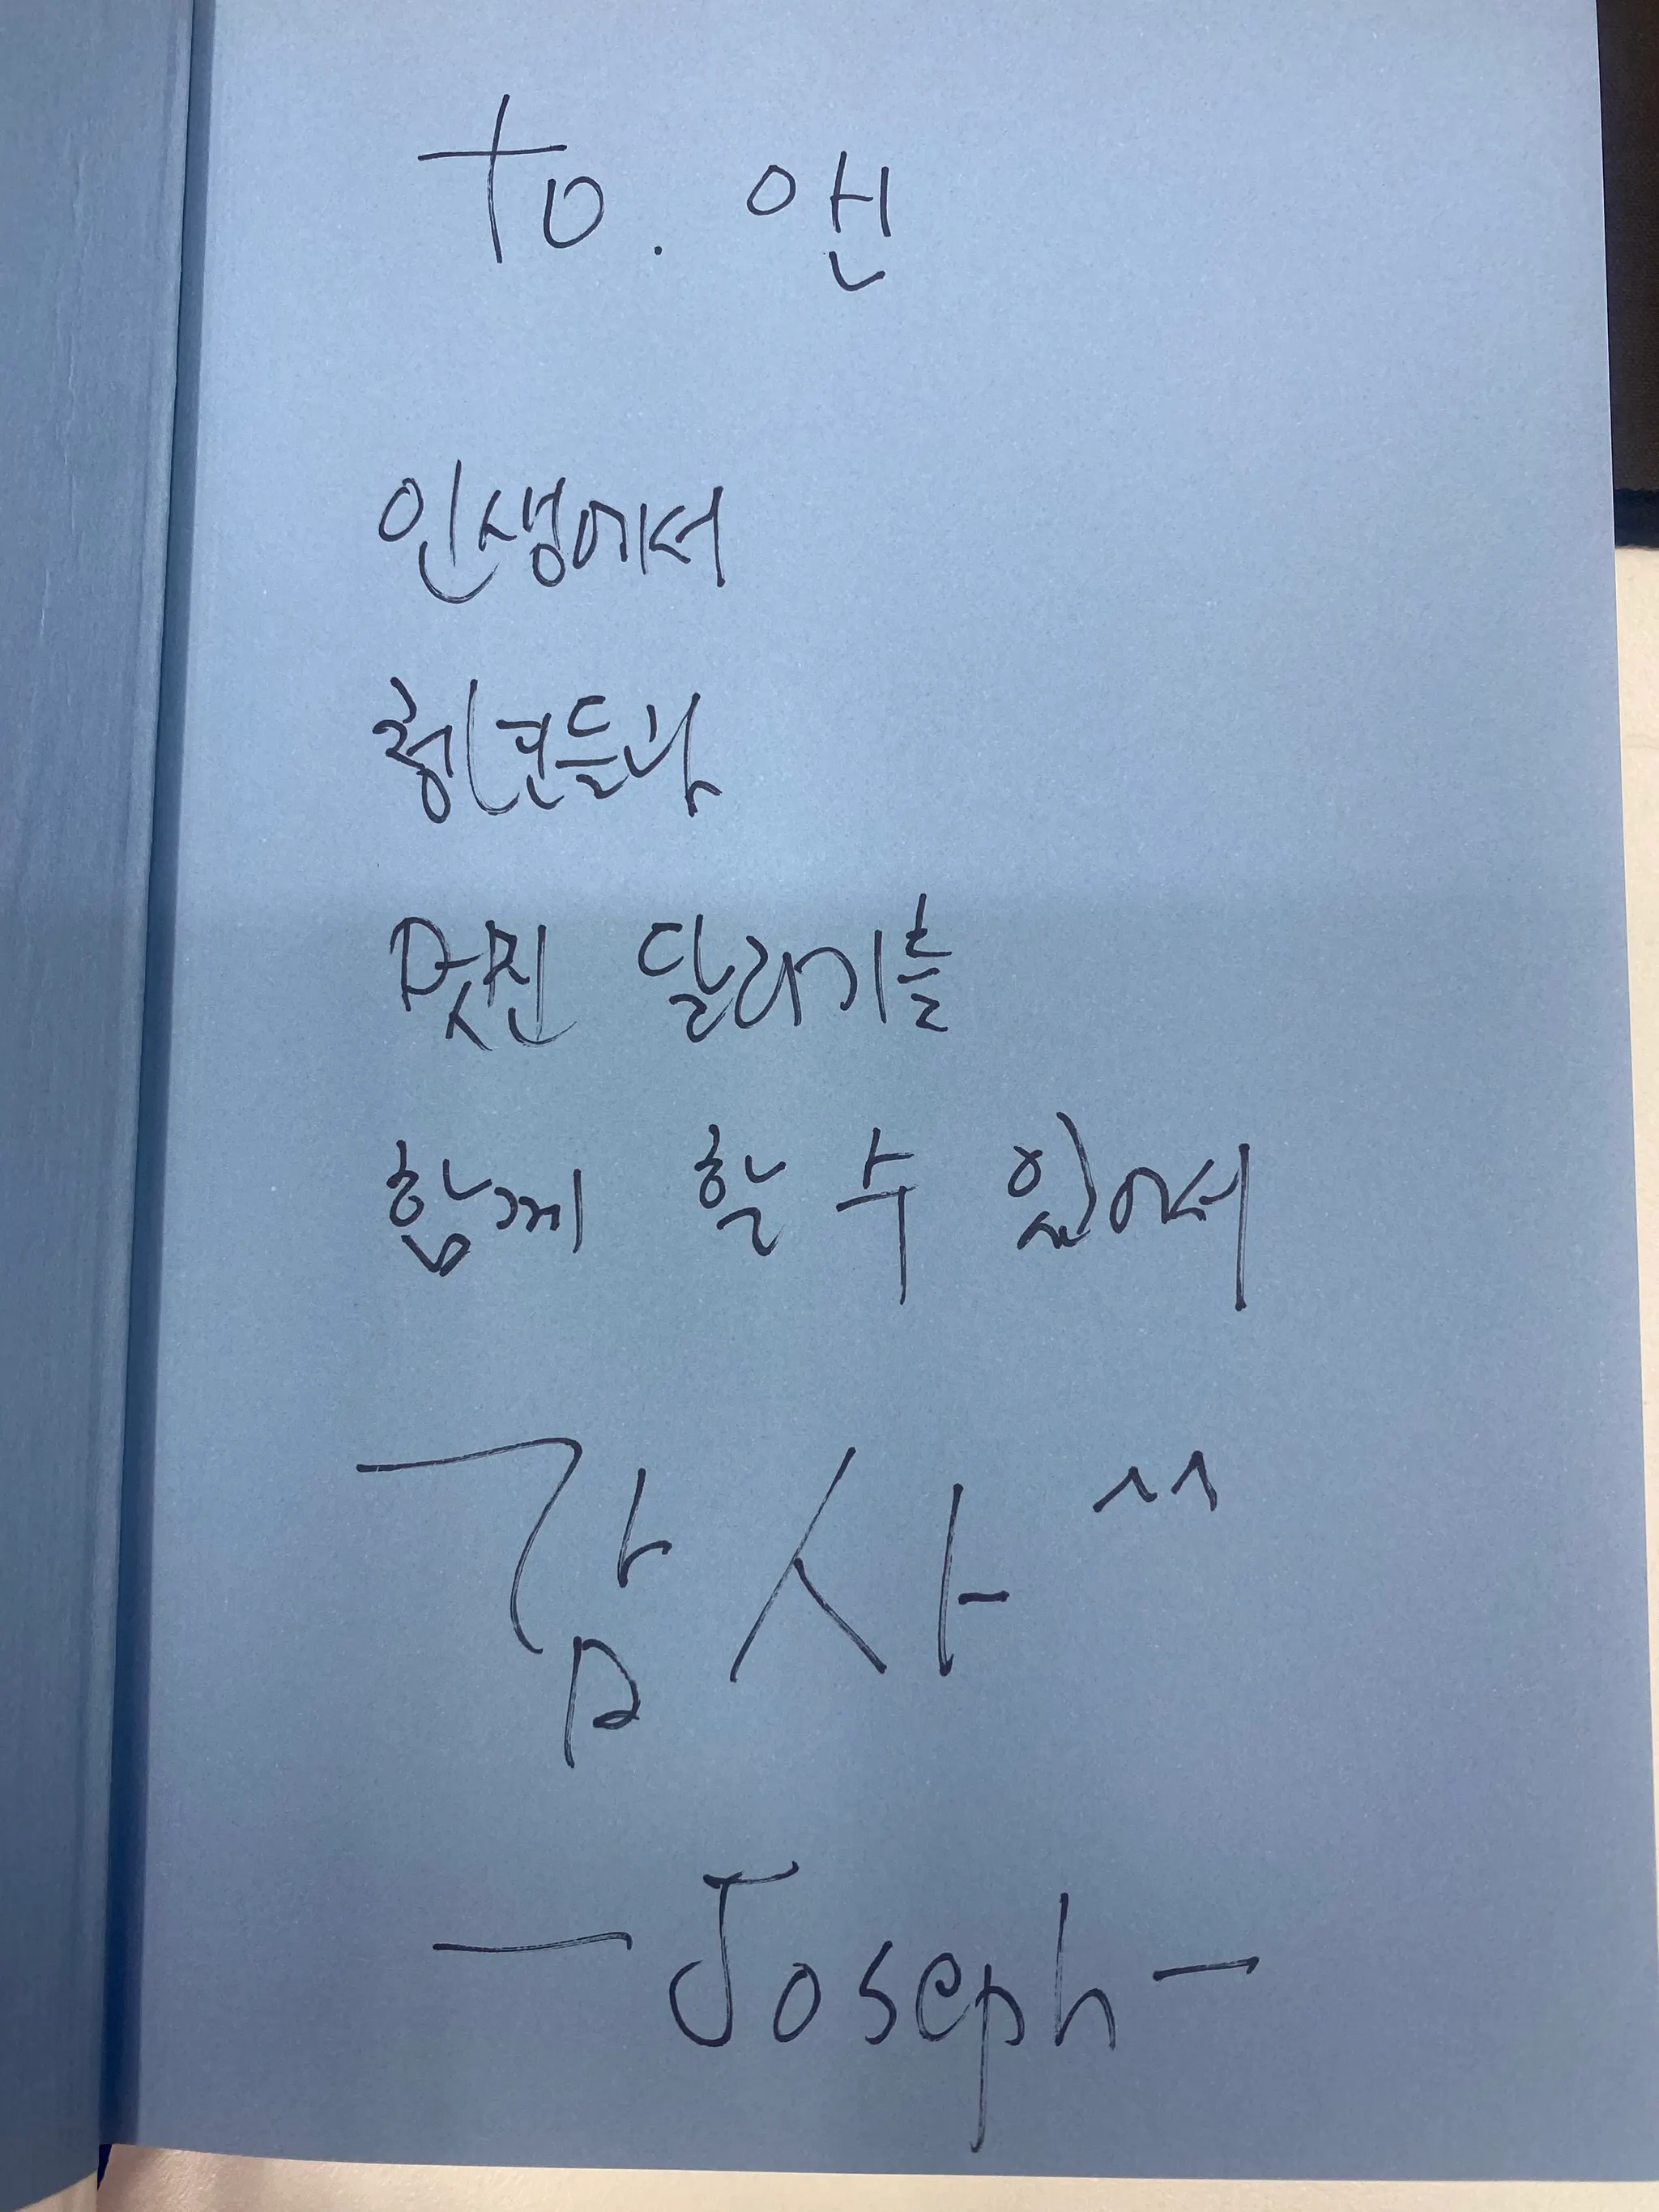 to. 앤
인생에서
청년들과
멋진 달리기를
함께 할 수 있어서
감사^^
- Joseph -